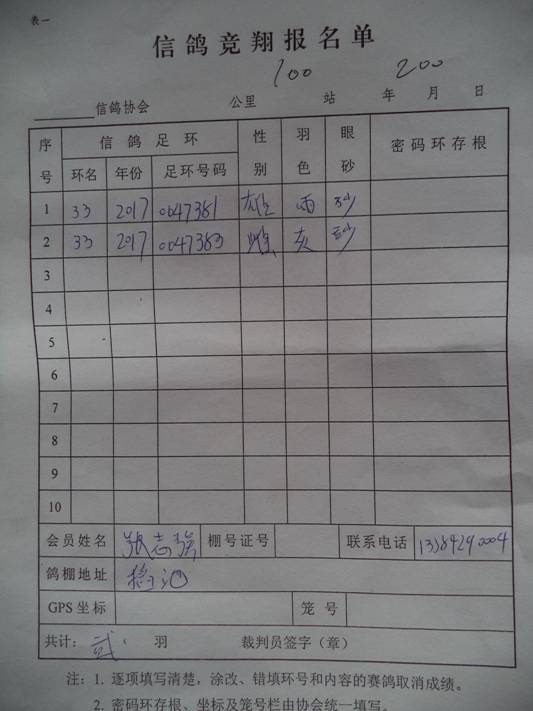 表一
信鸽竞翔报名单
100 200
信鸽协会 公里 站 年 月 日
序号 信鸽足环 性别 羽色 眼砂 密码环存根
环名 年份 足环号码
1 33 2017 0047381 雄 雨 砂
2 33 2017 0047383 雌 灰 砂
3
4
5
6
7
8
9
10
会员姓名 张志强 棚号证号 联系电话 13384290004
鸽棚地址
GPS坐标 笼号
共计：贰 羽 裁判员签字（章）
注：1. 逐项填写清楚，涂改、错填环号和内容的赛鸽取消成绩。
2. 密码环存根、坐标及笼号栏由协会统一填写。